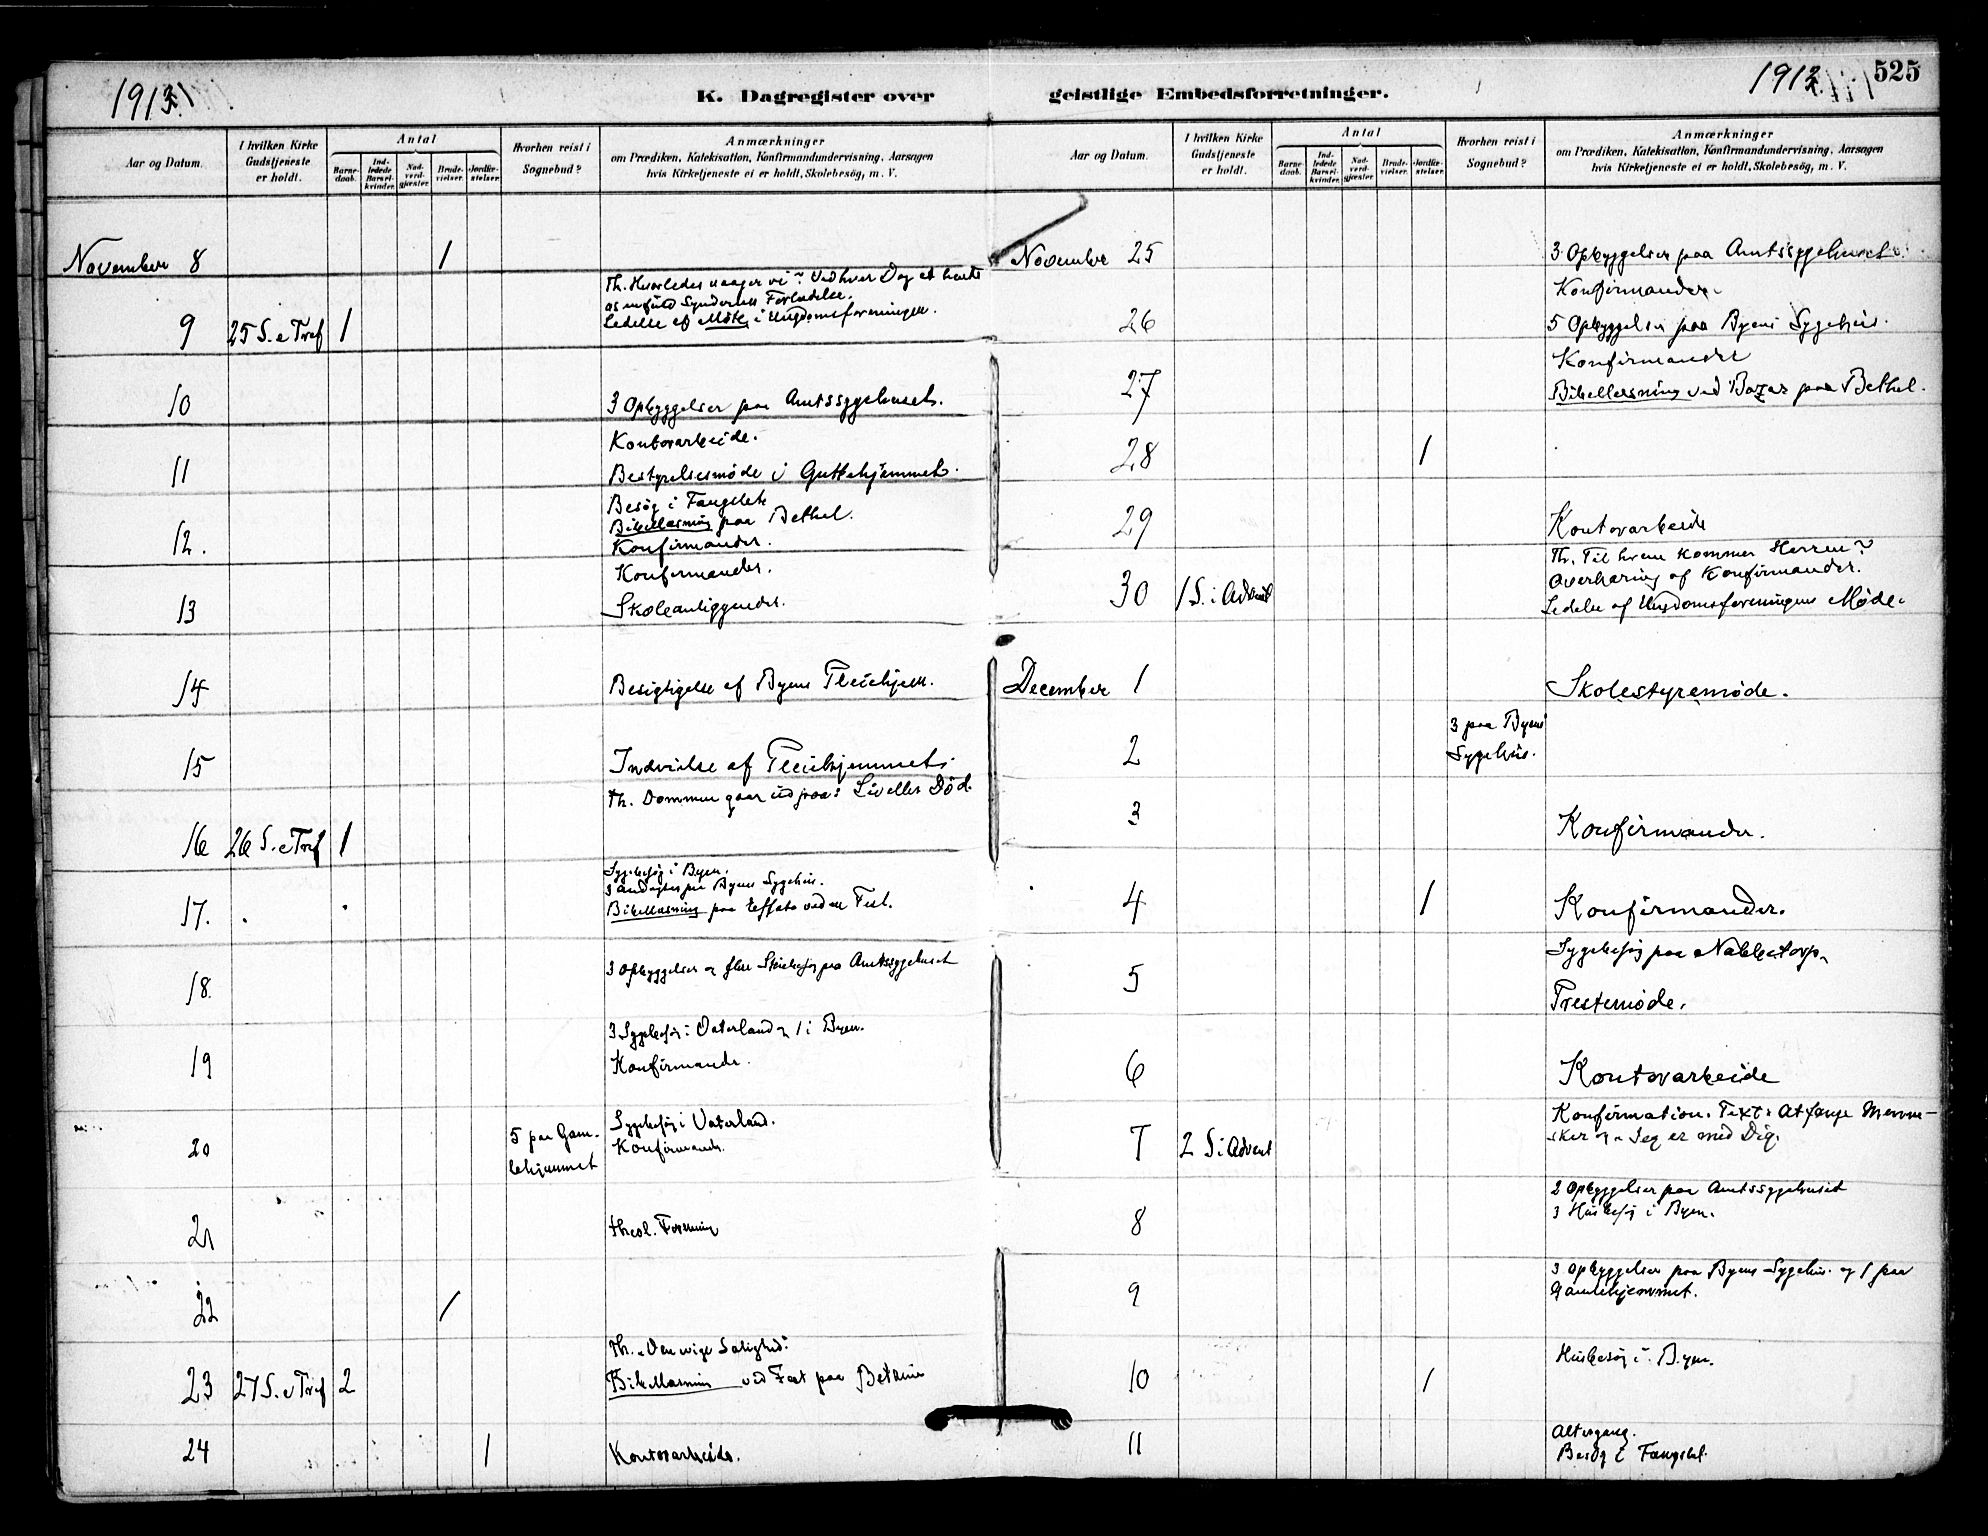 1913
K. Dagregister over
Aar og Datum.
I hvilken Kirke Gudstjeneste er holdt.
Antal
Barnedaab.
Indledede Barselkvinder.
Nadverdgjæster.
Brudevielser.
Jordfæstelser.
Hvorhen reist i Sognebud?
Anmærkninger
om Prædiken, Katekisation, Konfirmandundervisning, Aarsagen
hvis Kirketjeneste ei er holdt, Skolebesög, m. V.
November 8 1
Th. Hvorledes vi? Ved hver Dag at
os Syndernes Forladelse.
9 25 S. e Tref 1 Ledelse af Møte i Ungdomsforeningen.
10 3 Opbyggelser paa Amtssygehuset.
Kontorarbeide.
11 Bestyrelsesmøde i Guttehjemmet.
Besøg i Fængslet
Bibellæsning paa Bethel.
12. Konfirmander.
Konfirmander.
13 Skoleanliggender.
14 Besigtigelse af Byens Pleiehjem.
15 Indvielse af Pleiehjemmet.
Th. Dommen gaar ud paa: Liv eller Død.
16 26 S. e Tref 1
Sygebesøg i Byen.
3 Andagter paa Byens Sygehus.
17. Bibellæsning paa Effata ved en Fest.
18. 3 Opbyggelser og flere paa Amtssygehuset
3 Sygebesøg i Vaterland og 1 i Byen.
19 Konfirmander.
Sygebesøg i Vaterland.
20 5 paa Gamlehjemmet Konfirmander.
21 theol. Forening
22 1
Th. Den evige Salighed.
23 27 S. e Tref 2 Bibellæsning ved Fest paa Betania
24 1 Kontorarbeide.
1913
525
geistlige Embedsforretninger.
Aar og Datum.
I hvilken Kirke Gudstjeneste er holdt.
Antal
Barnedaab.
Indledede Barselkvinder.
Nadverdgjæster.
Brudevielser.
Jordfæstelser.
Hvorhen reist i Sognebud?
Anmærkninger
om Prædiken, Katekisation, Konfirmandundervisning, Aarsagen
hvis Kirketjeneste ei er holdt, Skolebesög, m. V.
November 25 3 Opbyggelser paa Amtssygehuset.
Konfirmander.
26 5 Opbyggelser paa Byens Sygehus.
Konfirmander
27 Bibellæsning ved Bazar paa Bethel.
28 1
29 Kontorarbeide
Th. Til hvem kommer Herren?
Overhøring af Konfirmander.
30 1 S. i Advent Ledelse af Ungdomsforeningens Møde.
December 1 Skolestyremøde.
2 3 paa Byens Sygehus.
3 Konfirmander.
4 1 Konfirmander.
Sygebesøg paa Nabbetorp.
5 Prestemøde.
6 Kontorarbeide
Konfirmation. Text: At fange Menne-
7 2 S. i Advent sker og Jeg er med Dig.
2 Opbyggelser paa Amtssygehuset
8 3 Husbesøg i Byen.
3 Opbyggelser paa Byens Sygehus. og 1 paa
9 Gamlehjemmet.
10 1 Husbesøg i Byen.
Altergang.
11 Besøg i Fængslet.